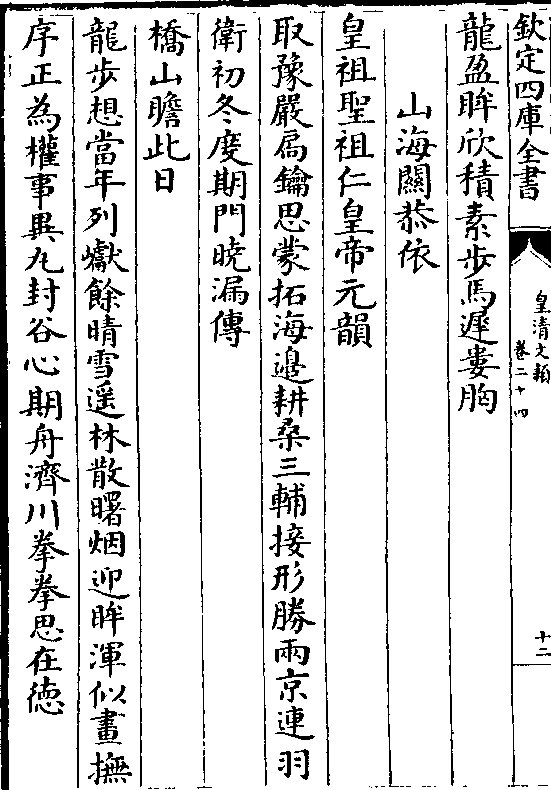 欽定四庫全書
皇清文頴
卷二十四
十二
龍盈眸欣積素步馬遲婁胸
山海關恭依
皇祖聖祖仁皇帝元韻
取豫嚴扃鑰思蒙拓海邉耕桑三輔接形勝兩京連羽
衛初冬度期門曉漏傳
橋山瞻此日
龍步想當年列巘餘晴雪遥林散曙烟迎眸渾似畫撫
序正為權事異丸封谷心期舟濟川拳拳思在徳